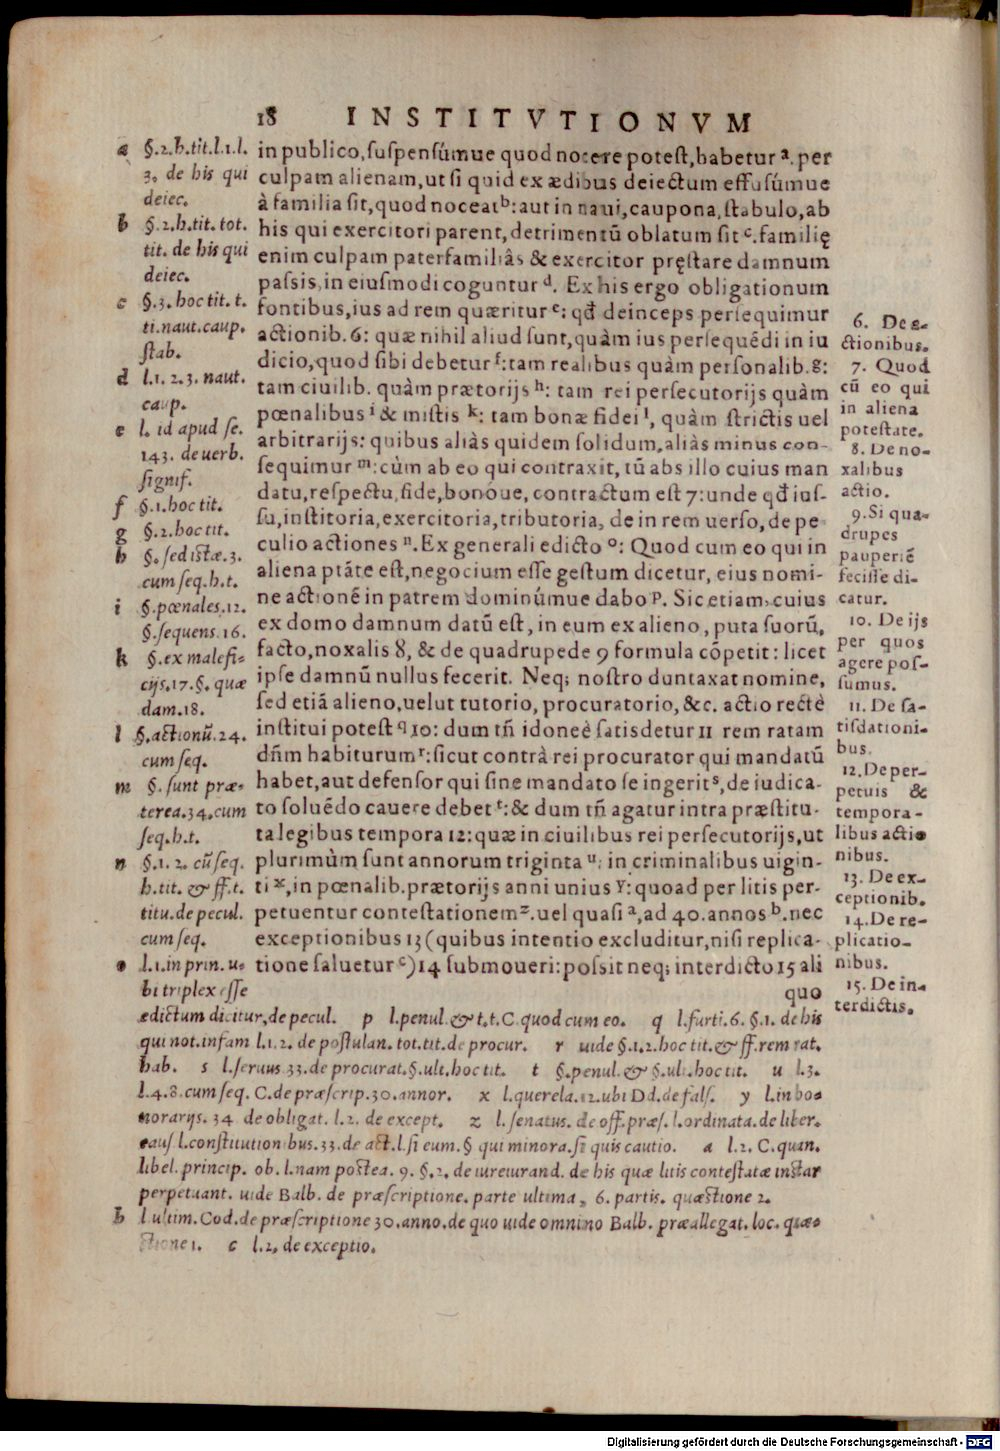 18 INSTITVTIONVM
in publico, suspensúmue quod nocere potest, habetur a. per
culpam alienam, ut si quid ex ædibus deiectum effusúmue
à familia sit, quod noceat b: aut in naui, caupona, stabulo, ab
his qui exercitori parent, detrimentũ oblatum sit c. familię
enim culpam paterfamiliâs & exercitor pręstare damnum
passis, in eiusmodi coguntur d. Ex his ergo obligationum
fontibus, ius ad rem quæritur e: qđ deinceps persequimur
actionib. 6: quæ nihil aliud sunt, quàm ius persequẽdi in iu
dicio, quod sibi debetur f: tam realibus quàm personalib. g:
tam ciuilib. quàm prætorijs h: tam rei persecutorijs quàm
pœnalibus i & mistis k: tam bonæ fidei l, quàm strictis uel
arbitrarijs: quibus aliàs quidem solidum, aliàs minus con-
sequimur m: cùm ab eo qui contraxit, tũ abs illo cuius man
datu, respectu, fide, bonóue, contractum est 7: unde qđ ius-
su, institoria, exercitoria, tributoria, de in rem uerso, de pe
culio actiones n. Ex generali edicto o: Quod cum eo qui in
aliena ptáte est, negocium esse gestum dicetur, eius nomi-
ne actionẽ in patrem dominúmue dabo p. Sic etiam, cuius
ex domo damnum datũ est, in eum ex alieno, puta suorũ,
facto, noxalis 8, & de quadrupede 9 formula cõpetit: licet
ipse damnũ nullus fecerit. Neq; nostro duntaxat nomine,
sed etiã alieno, uelut tutorio, procuratorio, &c. actio rectè
institui potest q 10: dum tñ idoneè satisdetur 11 rem ratam
dñm habiturum r: sicut contrà rei procurator qui mandatũ
habet, aut defensor qui sine mandato se ingerit s, de iudica-
to soluẽdo cauere debet t: & dum tñ agatur intra præstitu-
ta legibus tempora 12: quæ in ciuilibus rei persecutorijs, ut
plurimùm sunt annorum triginta u: in criminalibus uigin-
ti x, in pœnalib. prætorijs anni unius y: quoad per litis per-
petuentur contestationem z. uel quasi a, ad 40. annos b. nec
exceptionibus 13 (quibus intentio excluditur, nisi replica-
tione saluetur c) 14 submoueri: possit neq; interdicto 15 ali
quo
a §. 2. h. tit. l. 1. l.
3. de his qui
deiec.
b §. 2. h. tit. tot.
tit. de his qui
deiec.
c §. 3. hoc tit. t.
ti. naut. caup.
stab.
d l. 1. 2. 3. naut.
caup.
e l. id apud se.
143. de uerb.
signif.
f §. 1. hoc tit.
g §. 2. hoc tit.
h §. sed istæ. 3.
cum seq. h. t.
i §. pœnales. 12.
§. sequens. 16.
k §. ex malefi-
cijs. 17. §. quæ
dam. 18.
l §. actionũ. 24.
cum seq.
m §. sunt præ-
terea. 34. cum
seq. h. t.
n §. 1. 2. cũ seq.
h. tit. & ff. t.
titu. de pecul.
cum seq.
o l. 1. in prin. u-
bi triplex esse
ædictum dicitur, de pecul. p l. penul. & t. t. C. quod cum eo. q l. furti. 6. §. 1. de his
qui not. infam l. 1. 2. de postulan. tot. tit. de procur. r uide §. 1. 2. hoc tit. & ff. rem rat.
hab. s l. seruus 33. de procurat. §. ult. hoc tit. t §. penul. & §. ult. hoc tit. u l. 3.
l. 4. 8. cum seq. C. de præscrip. 30. annor. x l. querela. 12. ubi Dd. de fals. y l. in ho-
norarijs. 34 de obligat. l. 2. de except. z l. senatus. de off. præs. l. ordinata. de liber.
caus l. constitutionibus. 33. de act. l. si eum. § qui minora. si quis cautio. a l. 2. C. quan.
libel. princip. ob. l. nam postea. 9. §. 2. de iureiurand. de his quæ litis contestatæ instar
perpetuant. uide Balb. de præscriptione. parte ultima, 6. partis. quæstione 2.
b l ultim. Cod. de præscriptione 30. anno. de quo uide omnino Balb. præallegat. loc. quæ-
stione 1. c l. 2. de exceptio.
6. De a-
ctionibus.
7. Quod
cũ eo qui
in aliena
potestate.
8. De no-
xalibus
actio.
9. Si qua-
drupes
pauperiẽ
fecisse di-
catur.
10. De ijs
per quos
agere pos-
sumus.
11. De sa-
tisdationi-
bus.
12. De per-
petuis &
tempora-
libus actio
nibus.
13. De ex-
ceptionib.
14. De re-
plicatio-
nibus.
15. De in-
terdictis.
Digitalisierung gefördert durch die Deutsche Forschungsgemeinschaft - DFG